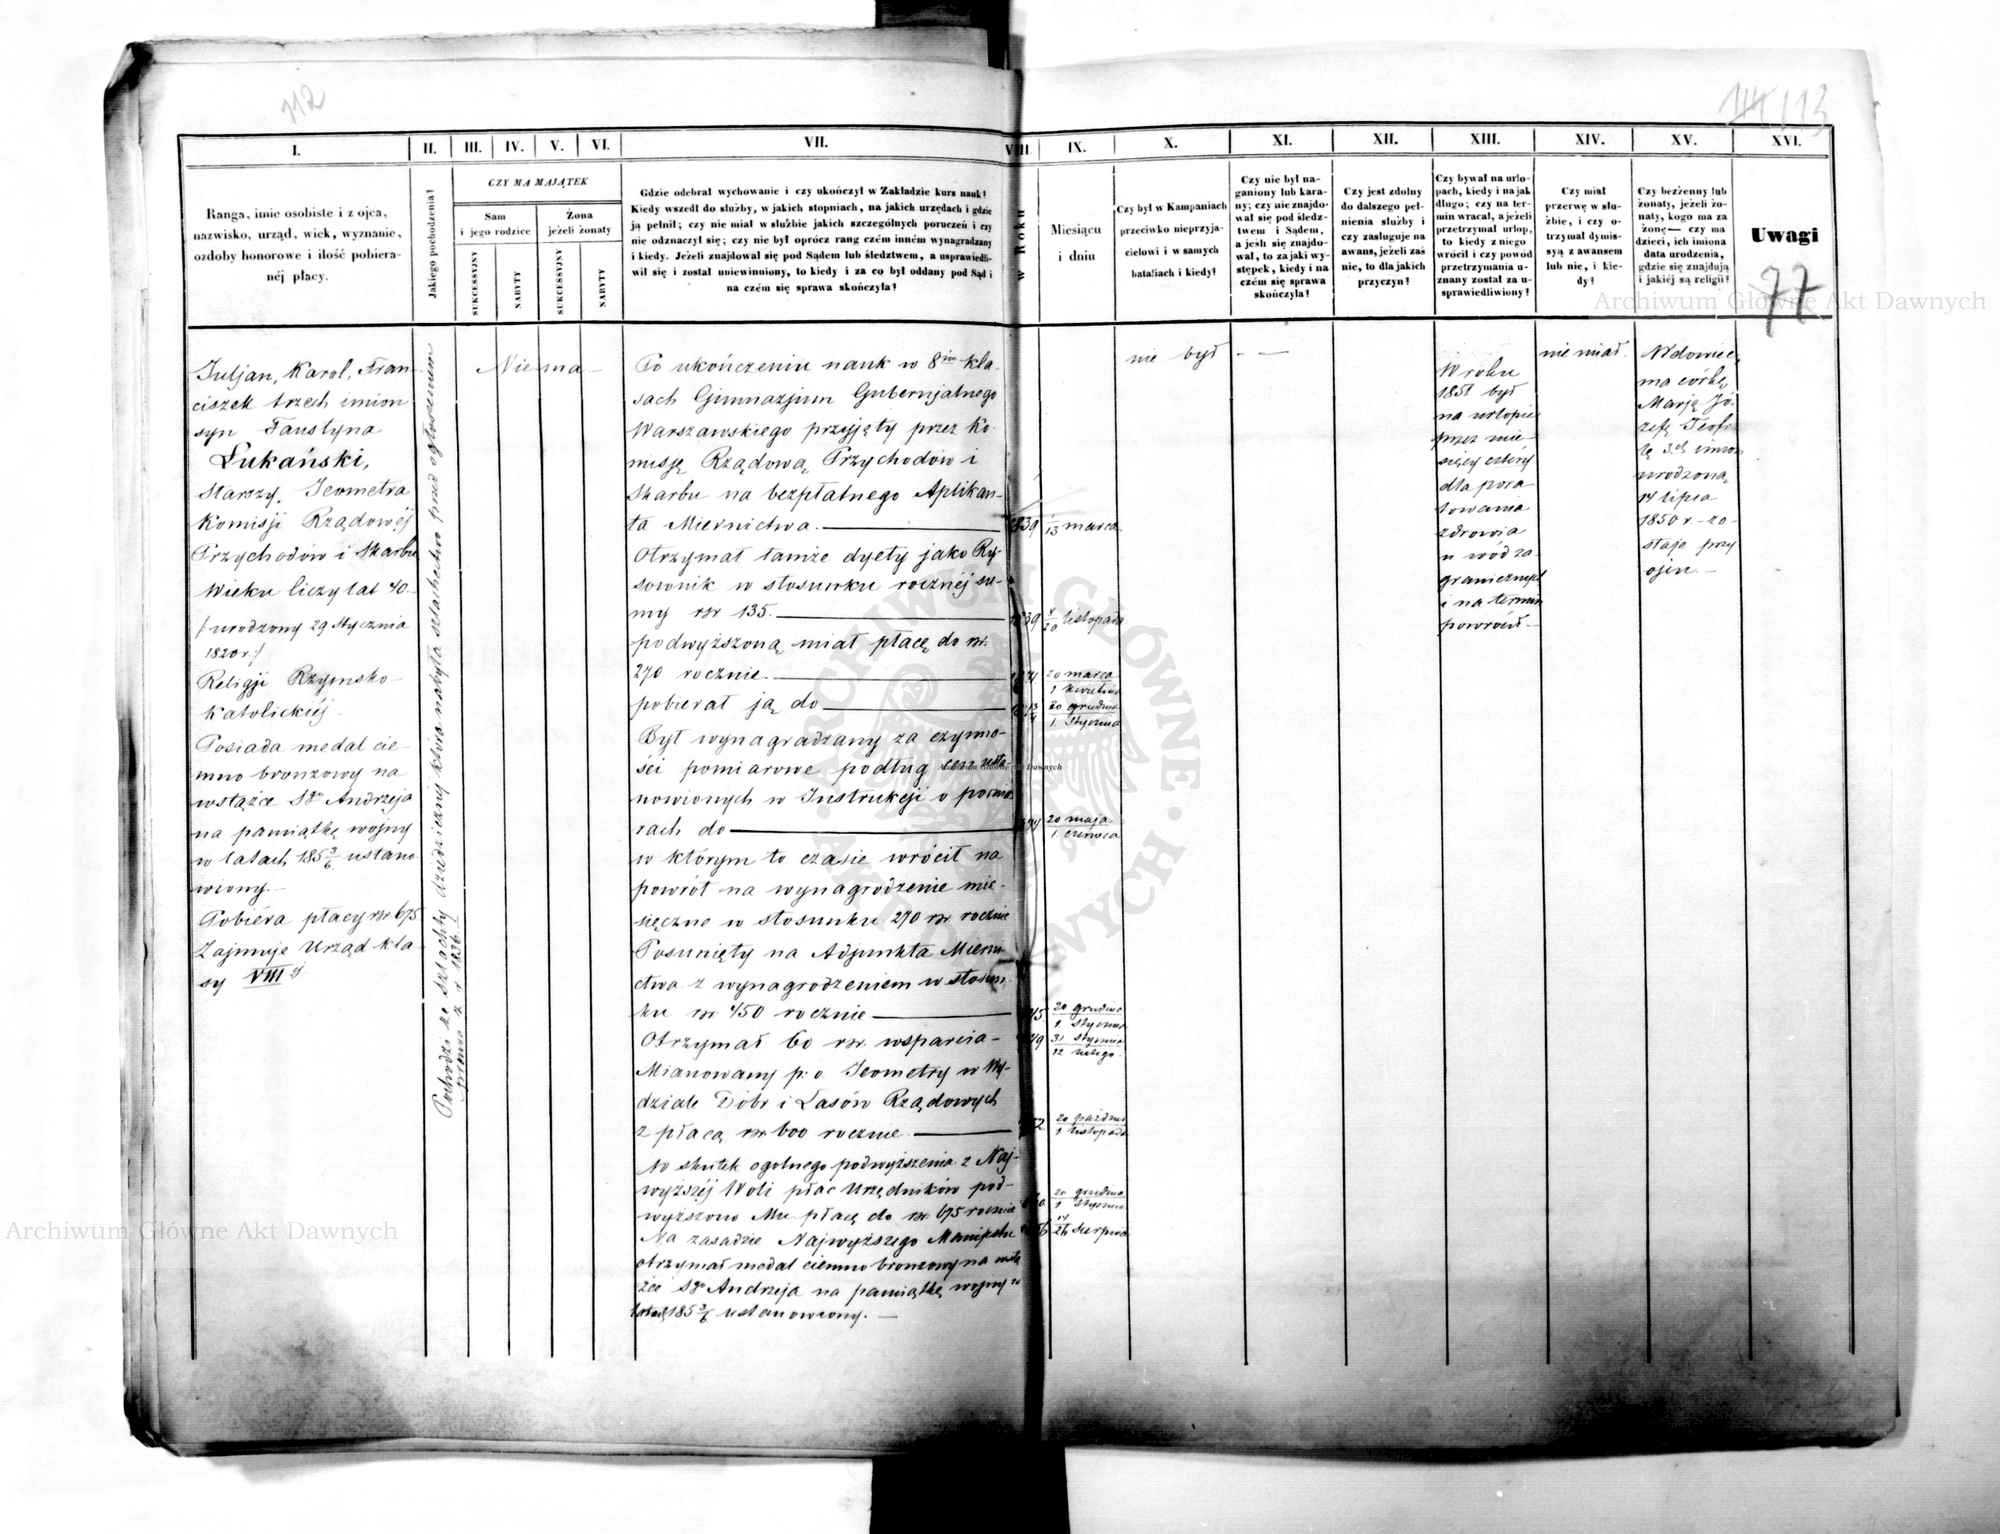 112
114 113
I. II. III. IV. V. VI. VII. VIII. IX. X. XI. XII. XIII. XIV. XV. XVI.
Ranga, imie osobiste i z ojca,
nazwisko, urząd, wiek, wyznanie,
ozdoby honorowe i ilość pobiera-
néj płacy.
Jakiego pochodzenia?
CZY MA MAJĄTEK
Sam
i jego rodzice
Żona
jeżeli żonaty
SUKCESSYJNY
NABYTY
SUKCESSYJNY
NABYTY
Gdzie odebrał wychowanie i czy ukończył w Zakładzie kurs nauk?
Kiedy wszedł do służby, w jakich stopniach, na jakich urzędach i gdzie
ją pełnił; czy nie miał w służbie jakich szczególnych poruczeń i czy
nie odznaczył się; czy nie był oprócz rang czém inném wynagradzany
i kiedy. Jeżeli znajdował się pod Sądem lub śledztwem, a usprawiedli-
wił się i został uniewinniony, to kiedy i za co był oddany pod Sąd i
na czém się sprawa skończyła?
w Roku
Miesiącu
i dniu
Czy był w Kampaniach
przeciwko nieprzyja-
cielowi i w samych
bataliach i kiedy?
Czy nie był na-
ganiony lub kara-
ny; czy nie znajdo-
wał się pod śledz-
twem i Sądem,
a jeśli się znajdo-
wał, to za jaki wy-
stępek, kiedy i na
czém się sprawa
skończyła?
Czy jest zdolny
do dalszego peł-
nienia służby i
czy zasługuje na
awans, jeżeli zaś
nie, to dla jakich
przyczyn?
Czy bywał na urlo-
pach, kiedy i na jak
długo; czy na ter-
min wracał, a jeżeli
przetrzymał urlop,
to kiedy z niego
wrócił i czy powód
przetrzymania u-
znany został za u-
sprawiedliwiony?
Czy miał
przerwę w słu-
żbie, i czy o-
trzymał dymis-
syą z awansem
lub nie, i kie-
dy?
Czy bezżenny lub
żonaty, jeżeli żo-
naty, kogo ma za
żonę — czy ma
dzieci, ich imiona
data urodzenia,
gdzie się znajdują
i jakiéj są religii?
Uwagi
77
Juljan, Karol, Fran-
ciszek trzech imion
syn Faustyna
Łukański,
Starszy Jeometra
Komisji Rządowéj
Przychodów i Skarbu
Wieku liczy lat 40.
/: urodzony 29 Stycznia
1820 r :/
Religji Rzymsko-
Katolickiéj
Posiada medal cie-
mno bronzowy na
wstążce Sgo Andrzeja
na pamiątkę wojny
w latach 185 3/6 ustano
wiony.
Pobiéra płacy rsr 675
Zajmuje Urząd kla-
sy VIIIéj
Pochodzi ze szlachty dziedzicznéj która nabyta szlachectwo przed ogłoszeniem
prawa z r. 1836.
Nie ma
Po ukończeniu nauk w 8miu kla-
sach Gimnazjum Gubernjalnego
Warszawskiego przyjęty przez Ko-
misję Rządową Przychodów i
Skarbu na bezpłatnego Aplikan-
ta Miernictwa.
Otrzymał tamże dyety jako Ry-
sownik w stosunku rocznéj su-
my rsr 135.
podwyższoną miał płacę do rsr.
270 rocznie.
pobierał ją do
Był wynagradzany za czynno-
ści pomiarowe podług cen usta-
nowionych w Instrukcji o pomia
rach do
w którym to czasie wrócił na
powrót na wynagrodzenie mie-
sięczne w stosunku 270 rsr rocznie
Posunięty na Adjunkta Mierni-
ctwa z wynagrodzeniem w stosun-
ku rsr 450 rocznie
Otrzymał 60 rsr. wsparcia
Mianowany p: o Jeometry w Wy-
dziale Dóbr i Lasów Rządowych
z płacą rsr 600 rocznie
W skutek ogólnego podwyższenia z Naj-
wyższéj Woli płac Urzędników pod-
wyższono Mu płacę do rsr 675 rocznie
Na zasadzie Najwyższego Manifestu
otrzymał medal ciemno bronzowy na wstą
żce Sgo Andrzeja na pamiątkę wojny w
latach 185 3/6 ustanowiony.
1839 1/13 marca
1839 8/20 listopada
20 marca
1 kwietnia
20 grudnia
1 Stycznia
20 maja
1 czérwca
20 grudnia
1 Stycznia
31 Stycznia
12 lutego
20 paździer
1 listopada
20 grudnia
1 Stycznia
14/26 Sierpnia
nie był
W roku
1851 był
na urlopie
przez mie-
sięcy cztéry
dla pora-
towania
zdrowia
u wód za-
granicznych
i na termin
powrócił
nie miał.
Wdowiec,
ma córkę
Marję Jó-
zefę Teofi-
lę 3ch imion
urodzoną
14 lipca
1850 r. zo-
staje przy
ojcu.
Archiwum Główne Akt Dawnych
Archiwum Główne Akt Dawnych
Archiwum Główne Akt Dawnych
ARCHIWUM GŁÓWNE AKT DAWNYCH